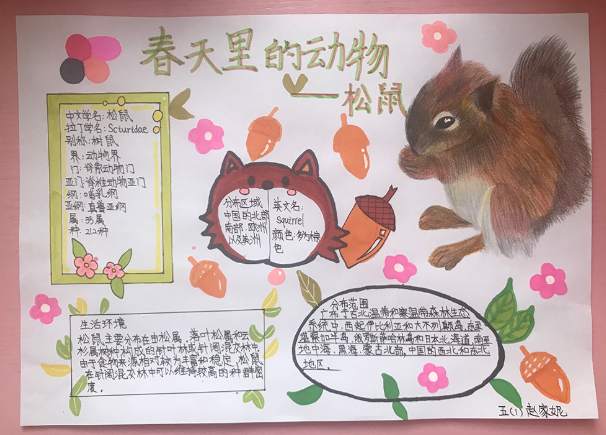 春天里的动物
——松鼠
中文学名:松鼠
拉丁学名:Sciuridae
别称:树鼠
界:动物界
门:脊索动物门
亚门:脊椎动物亚门
纲:哺乳纲
亚纲:真兽亚纲
属:35属
种:212种
分布区域:
中国的北部
南部.欧洲
以及美洲
英文名:
squirrel
颜色:
色
生活环境
松鼠主要分布在由松属、落叶松属和云
杉属树种构成的针叶林或针阔混交林中.
由于食物来源相对较为丰富和稳定,松鼠
在针阔混交林中可以维持较高的种群密
度。
分布范围
广布于古北温带和寒温带森林生态
系统中,西起伊比利亚和大不列颠岛,东至
堪察加半岛,俄罗斯萨哈林岛和日本北海道,南至
地中海、黑海、蒙古北部、中国的西北和东北
地区。
五(1)赵家妮